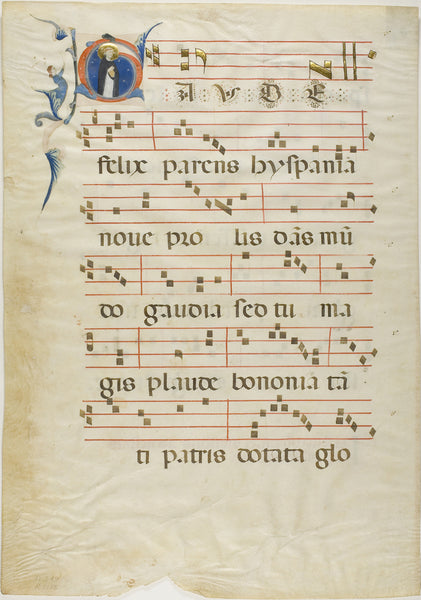 GAUDE
felix parens hyspania
noue pro lis dās mū
do gaudia sed tu ma
gis plaude bononia tā
ti patris dotata glo